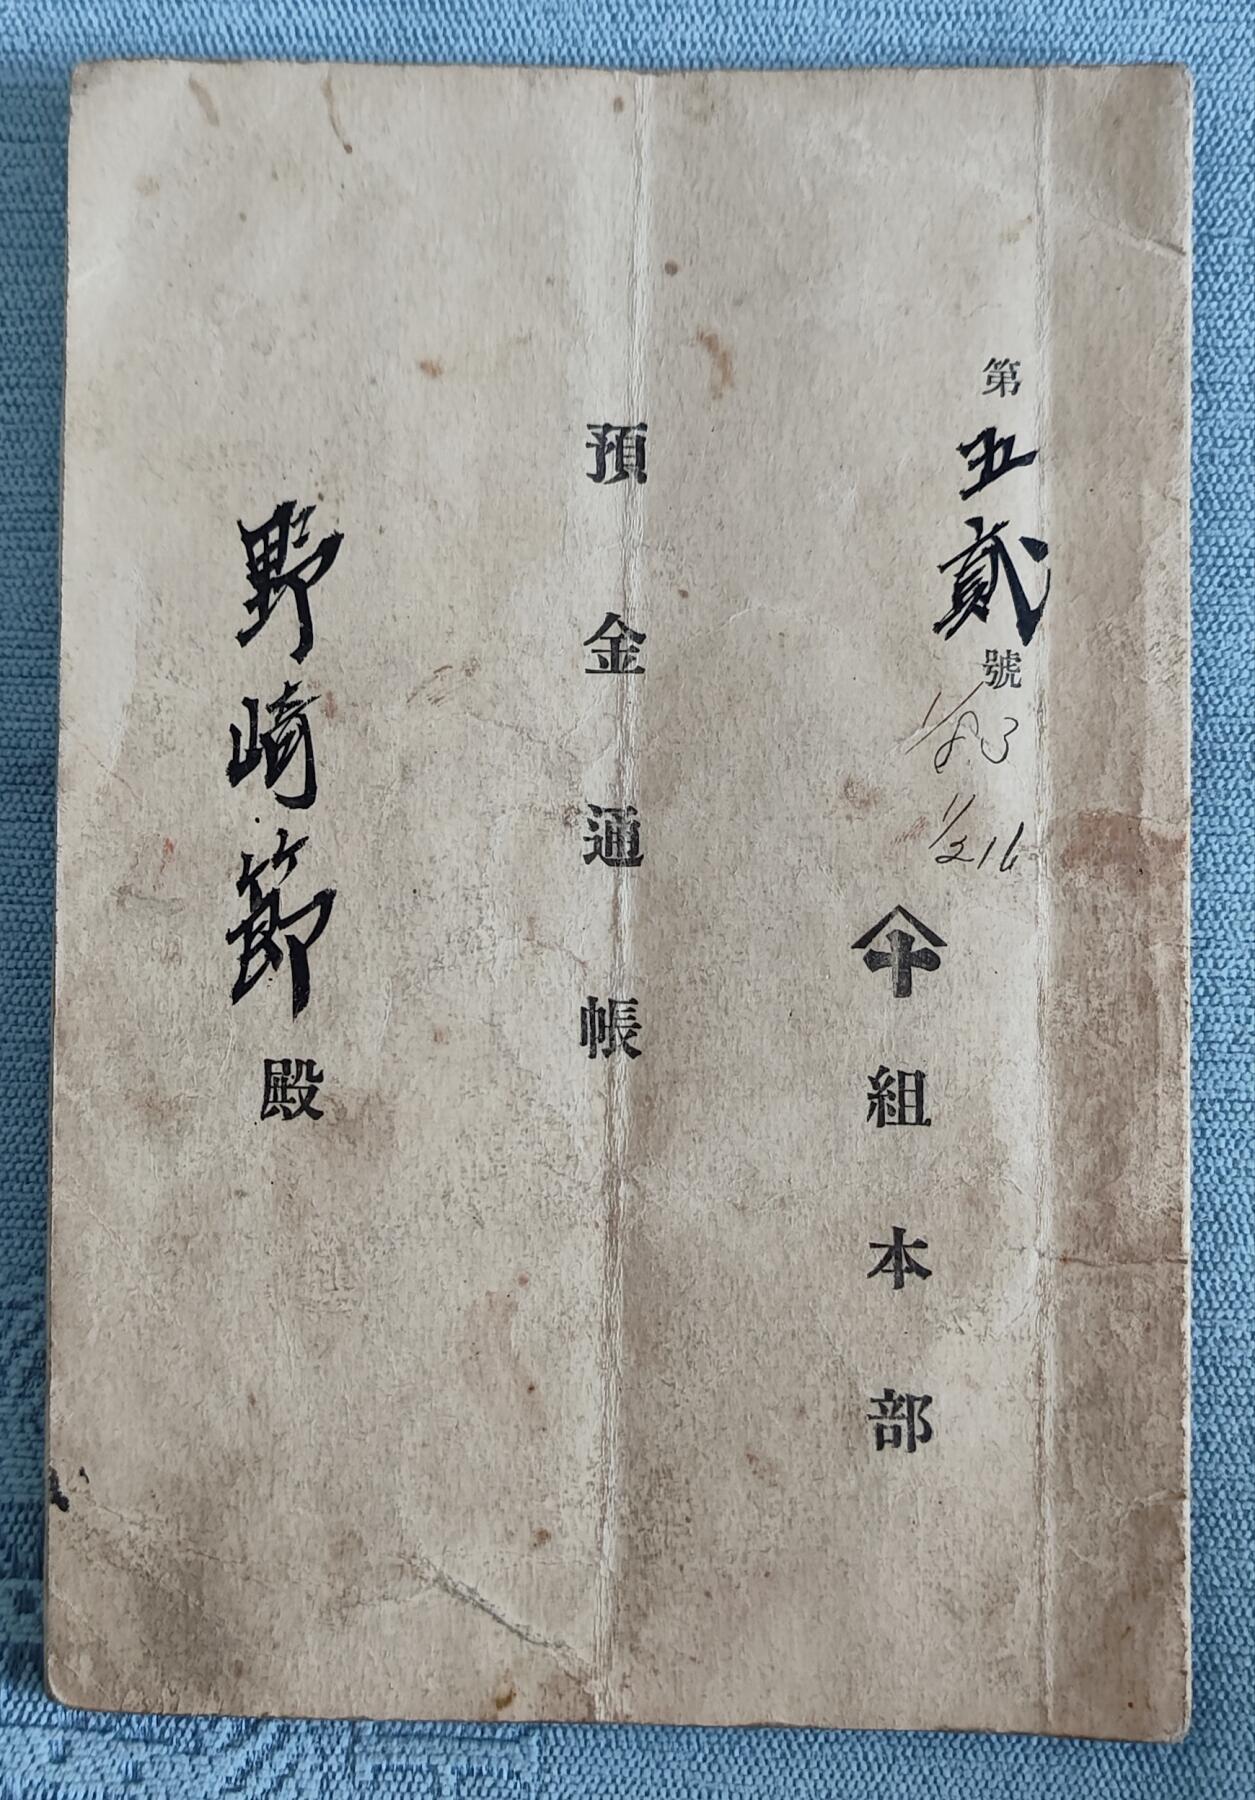 第五貳號
1/8.3
1/216
𠆢十組本部
預金通帳
野崎節殿